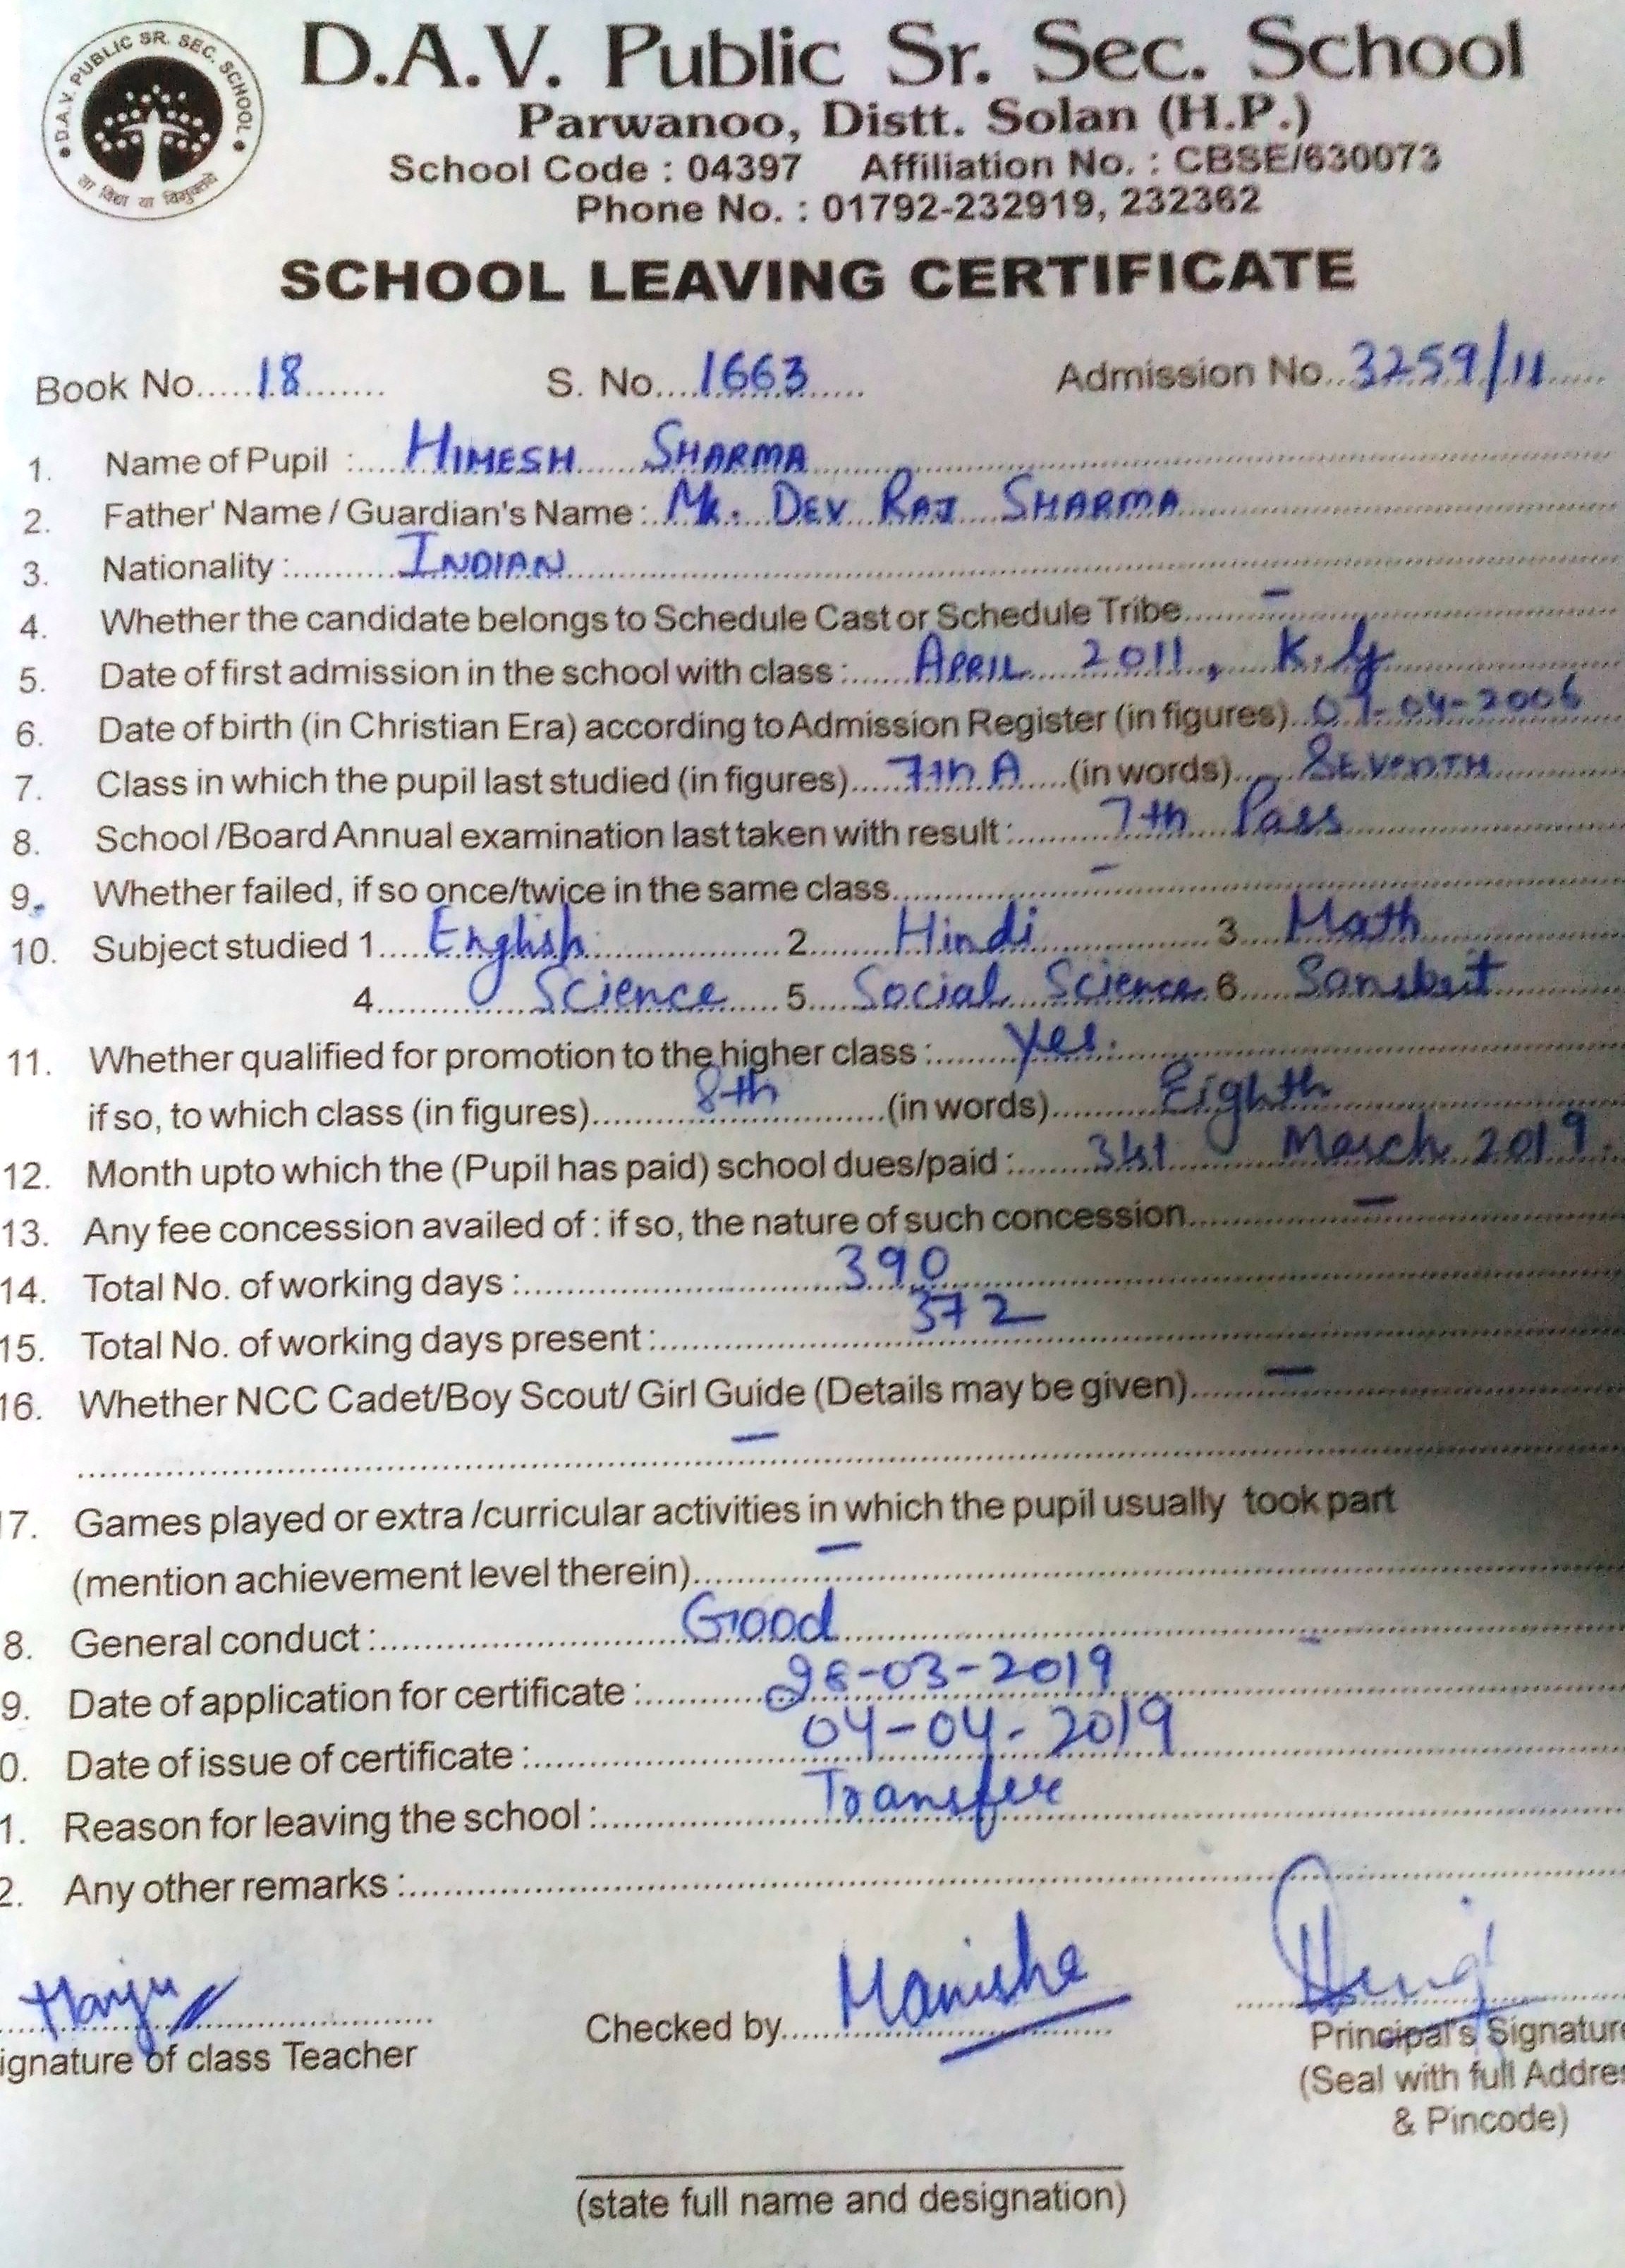 D.A.V. PUBLIC SR. SEC. SCHOOL
सा विद्या या विमुक्तये
D.A.V. Public Sr. Sec. School
Parwanoo, Distt. Solan (H.P.)
School Code : 04397 Affiliation No. : CBSE/630073
Phone No. : 01792-232919, 232362
SCHOOL LEAVING CERTIFICATE
Book No. 18 S. No. 1663 Admission No. 3259/11
1. Name of Pupil : HIMESH SHARMA
2. Father' Name / Guardian's Name : Mr. DEV RAJ SHARMA
3. Nationality : INDIAN
4. Whether the candidate belongs to Schedule Cast or Schedule Tribe –
5. Date of first admission in the school with class : APRIL 2011, K.G
6. Date of birth (in Christian Era) according to Admission Register (in figures) 07-04-2006
7. Class in which the pupil last studied (in figures) 7th A (in words) SEVENTH
8. School /Board Annual examination last taken with result : 7th Pass
9. Whether failed, if so once/twice in the same class –
10. Subject studied 1 English 2 Hindi 3 Math
4 Science 5 Social Science 6 Sanskrit
11. Whether qualified for promotion to the higher class : Yes.
if so, to which class (in figures) 8th (in words) Eighth
12. Month upto which the (Pupil has paid) school dues/paid : 31st March 2019.
13. Any fee concession availed of : if so, the nature of such concession –
14. Total No. of working days : 390
15. Total No. of working days present : 372
16. Whether NCC Cadet/Boy Scout/ Girl Guide (Details may be given) –
–
7. Games played or extra /curricular activities in which the pupil usually took part
(mention achievement level therein) –
8. General conduct : Good –
9. Date of application for certificate : 28-03-2019
0. Date of issue of certificate : 04-04-2019
1. Reason for leaving the school : Transfer
2. Any other remarks :
Manju Checked by Manisha
ignature of class Teacher Principal's Signature
(Seal with full Addres
& Pincode)
(state full name and designation)